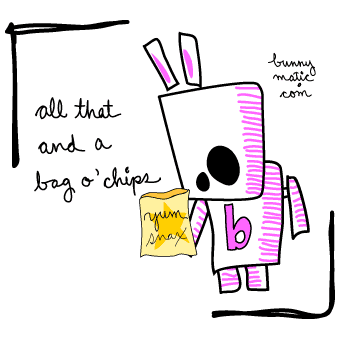 all that
and a
bag o'chips
bunny
matic
.com
yum
snax
b